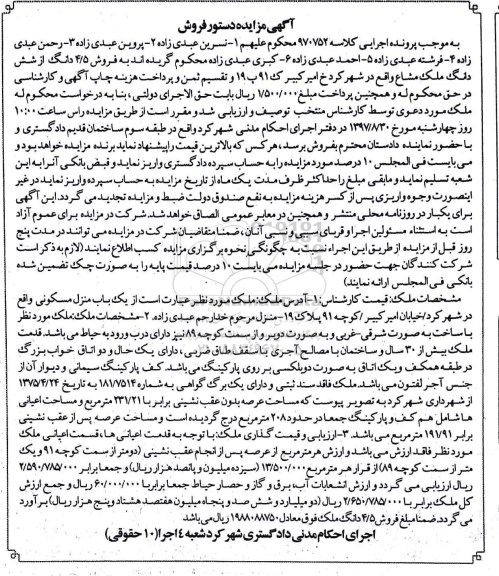 آگهی مزایده دستور فروش
به موجب پرونده اجرایی کلاسه ۹۷۰۷۵۲ محکوم علیهم ۱-نسرین عبدی زاده ۲-پروین عبدی زاده ۳-رحمن عبدی
زاده ۴-فرشته عبدی زاده ۵-احمد عبدی زاده ۶-کبری عبدی زاده محکوم گردیده اند به فروش ۴/۵ دانگ از شش
دانگ ملک مشاع واقع در شهرکرد خ امیرکبیر ک ۹۱ پ ۱۹ و تقسیم ثمن و پرداخت هزینه چاپ آگهی و کارشناسی
در حق محکوم له و همچنین پرداخت مبلغ ۱/۵۰۰/۰۰۰ ریال بابت حق الاجرای دولتی، بنا به درخواست محکوم له
ملک مورد دعوی توسط کارشناس منتخب توصیف و ارزیابی شد و مقرر است از طریق مزایده راس ساعت ۱۰:۰۰
روز چهارشنبه مورخ ۱۳۹۷/۸/۳۰ در دفتر اجرای احکام مدنی شهرکرد واقع در طبقه سوم ساختمان قدیم دادگستری و
با حضور نماینده دادستان محترم بفروش برسد، هرکس که بالاترین قیمت را پیشنهاد نماید برنده مزایده خواهد بود و
می بایست فی المجلس ۱۰ درصد مورد مزایده را به حساب سپرده دادگستری واریز نماید و قبض بانکی آنرا به این
شعبه تسلیم نماید و مابقی مبلغ را حداکثر ظرف مدت یک ماه از تاریخ مزایده به حساب سپرده واریز نماید در غیر
اینصورت وجوه واریزی پس از کسر هزینه مزایده به نفع صندوق دولت ضبط و مزایده تجدید می گردد. این آگهی
برای یکبار در روزنامه محلی منتشر و همچنین در معابر عمومی الصاق خواهد شد. شرکت در مزایده برای عموم آزاد
است به استثناء مسئولین اجرا و اقربای سببی و نسبی آنان، ضمنا متقاضیان شرکت در مزایده می توانند در مدت پنج
روز قبل از مزایده از طریق این اجراء نسبت به چگونگی نحوه برگزاری مزایده کسب اطلاع نمایند. (لازم به ذکر است
شرکت کنندگان جهت حضور در جلسه مزایده می بایست ۱۰ درصد قیمت پایه را به صورت چک تضمین شده
بانکی فی المجلس ارائه نمایند)
مشخصات ملک: قیمت کارشناس: ۱-آدرس ملک: ملک مورد نظر عبارت است از یک باب منزل مسکونی واقع
در شهرکرد/خیابان امیرکبیر/کوچه ۹۱ پلاک ۱۹-منزل مرحوم خدارحم عبدی زاده. ۲-مشخصات ملک: ملک مورد نظر
با ساخت به صورت شرقی-غربی و به صورت دوبر و از سمت کوچه ۸۹ نیز دارای درب ورود به حیاط می باشد. قدمت
ملک بیش از ۳۰ سال و ساختمان با مصالح آجری با سقف طاق ضربی، دارای یک حال و دو اتاق خواب بزرگ
در طبقه همکف و یک اتاق به صورت دوبلکسی بر روی پارکینگ می باشد. کف پارکینگ سیمانی و دیوار آن از
جنس آجر لفتون می باشد. ملک فاقد سند ثبتی و دارای یک برگ گواهی به شماره ۱۸۱/۷۵۱۴ به تاریخ ۱۳۷۵/۴/۲۴
از شهرداری شهرکرد به تصویر پیوست که مساحت عرصه بدون عقب نشینی برابر با ۲۳۱/۲۱ مترمربع و مساحت اعیانی
ها شامل هم کف و پارکینگ جمعا در حدود ۲۰۸ مترمربع درج گردیده است و مساحت عرصه پس از عقب نشینی
برابر ۱۹۱/۹۱ مترمربع می باشد. ۳-ارزیابی و قیمت گذاری ملک: با توجه به قدمت اعیانی ها، قسمت اعیانی ملک
مورد نظر فاقد ارزش می باشد و ارزش هر مترمربع از عرصه پس از انجام عقب نشینی (دومتر از سمت کوچه ۹۱ و یک
متر از سمت کوچه ۸۹) از قرار هر مترمربع ۱۳/۵۰۰/۰۰۰ (سیزده میلیون و پانصد هزار ریال) و جمعا برابر ۲/۵۹۰/۷۸۵/۰۰۰
ریال ارزیابی می گردد و ارزش انشعابات آب، برق و گاز و حصار حیاط جمعا برابر با ۶۰/۰۰۰/۰۰۰ ریال و جمع ارزش
کل ملک برابر با ۲/۶۵۰/۷۸۵/۰۰۰ ریال (دو میلیارد و شش صد و پنجاه میلیون هفتصد هشتاد و پنج هزار ریال) برآورد
می گردد. ضمنا مبلغ فروش ۴/۵ دانگ ملک فوق معادل ۱۹۸۸۰۸۸۷۵۰ ریال می باشد
اجرای احکام مدنی دادگستری شهرکرد شعبه ۴ اجرا (۱۰ حقوقی)